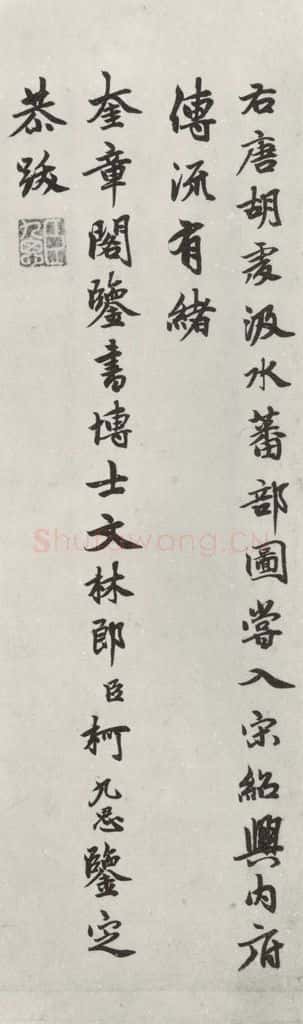 右唐胡虔汲水蕃部圖嘗入宋紹興内府
傳流有緒
奎章閣鑒書博士文林郎臣柯九思鑒定
恭跋
Shufawang.CN